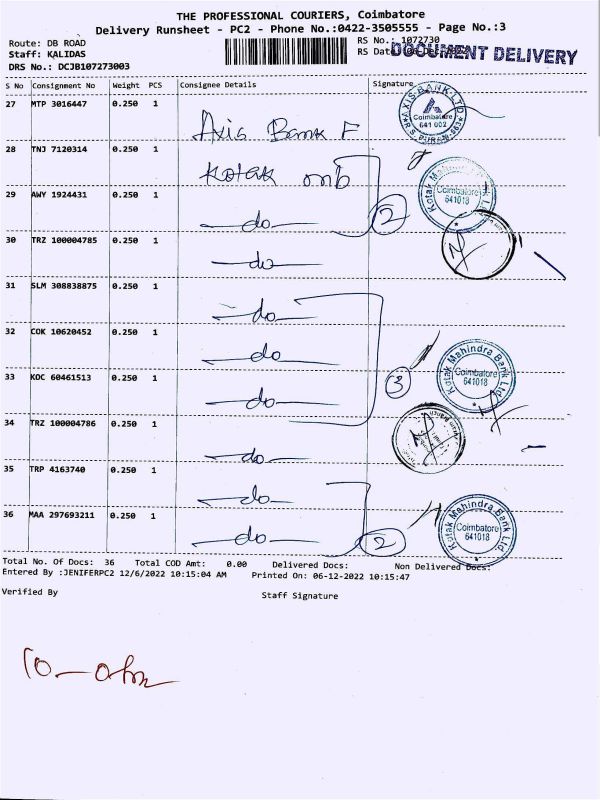 THE PROFESSIONAL COURIERS, Coimbatore
Delivery Runsheet - PC2 - Phone No.:0422-3505555 - Page No.:3
Route: DB ROAD
RS No.: 1072730
Staff: KALIDAS
RS Date
DOCUMENT DELIVERY
DRS No.: DCJB107273003
S No Consignment No Weight PCS Consignee Details Signature
27 MTP 3016447 0.250 1
Axis Bank F
AXIS BANK LTD
Coimbatore
641 002
28 TNJ 7120314 0.250 1
Kotak mb
29 AWY 1924431 0.250 1
-do-
2
Kotak Mahindra Bank Ltd
Coimbatore
641018
30 TRZ 100004785 0.250 1
-do-
31 SLM 308838875 0.250 1
-do-
32 COK 10620452 0.250 1
-do-
33 KOC 60461513 0.250 1
-do-
3
Kotak Mahindra Bank Ltd
Coimbatore
641018
34 TRZ 100004786 0.250 1
-do-
35 TRP 4163740 0.250 1
-do-
36 MAA 297693211 0.250 1
-do-
2
Kotak Mahindra Bank Ltd
Coimbatore
641018
Total No. Of Docs: 36 Total COD Amt: 0.00 Delivered Docs: Non Delivered Docs:
Entered By :JENIFERPC2 12/6/2022 10:15:04 AM Printed On: 06-12-2022 10:15:47
Verified By
Staff Signature